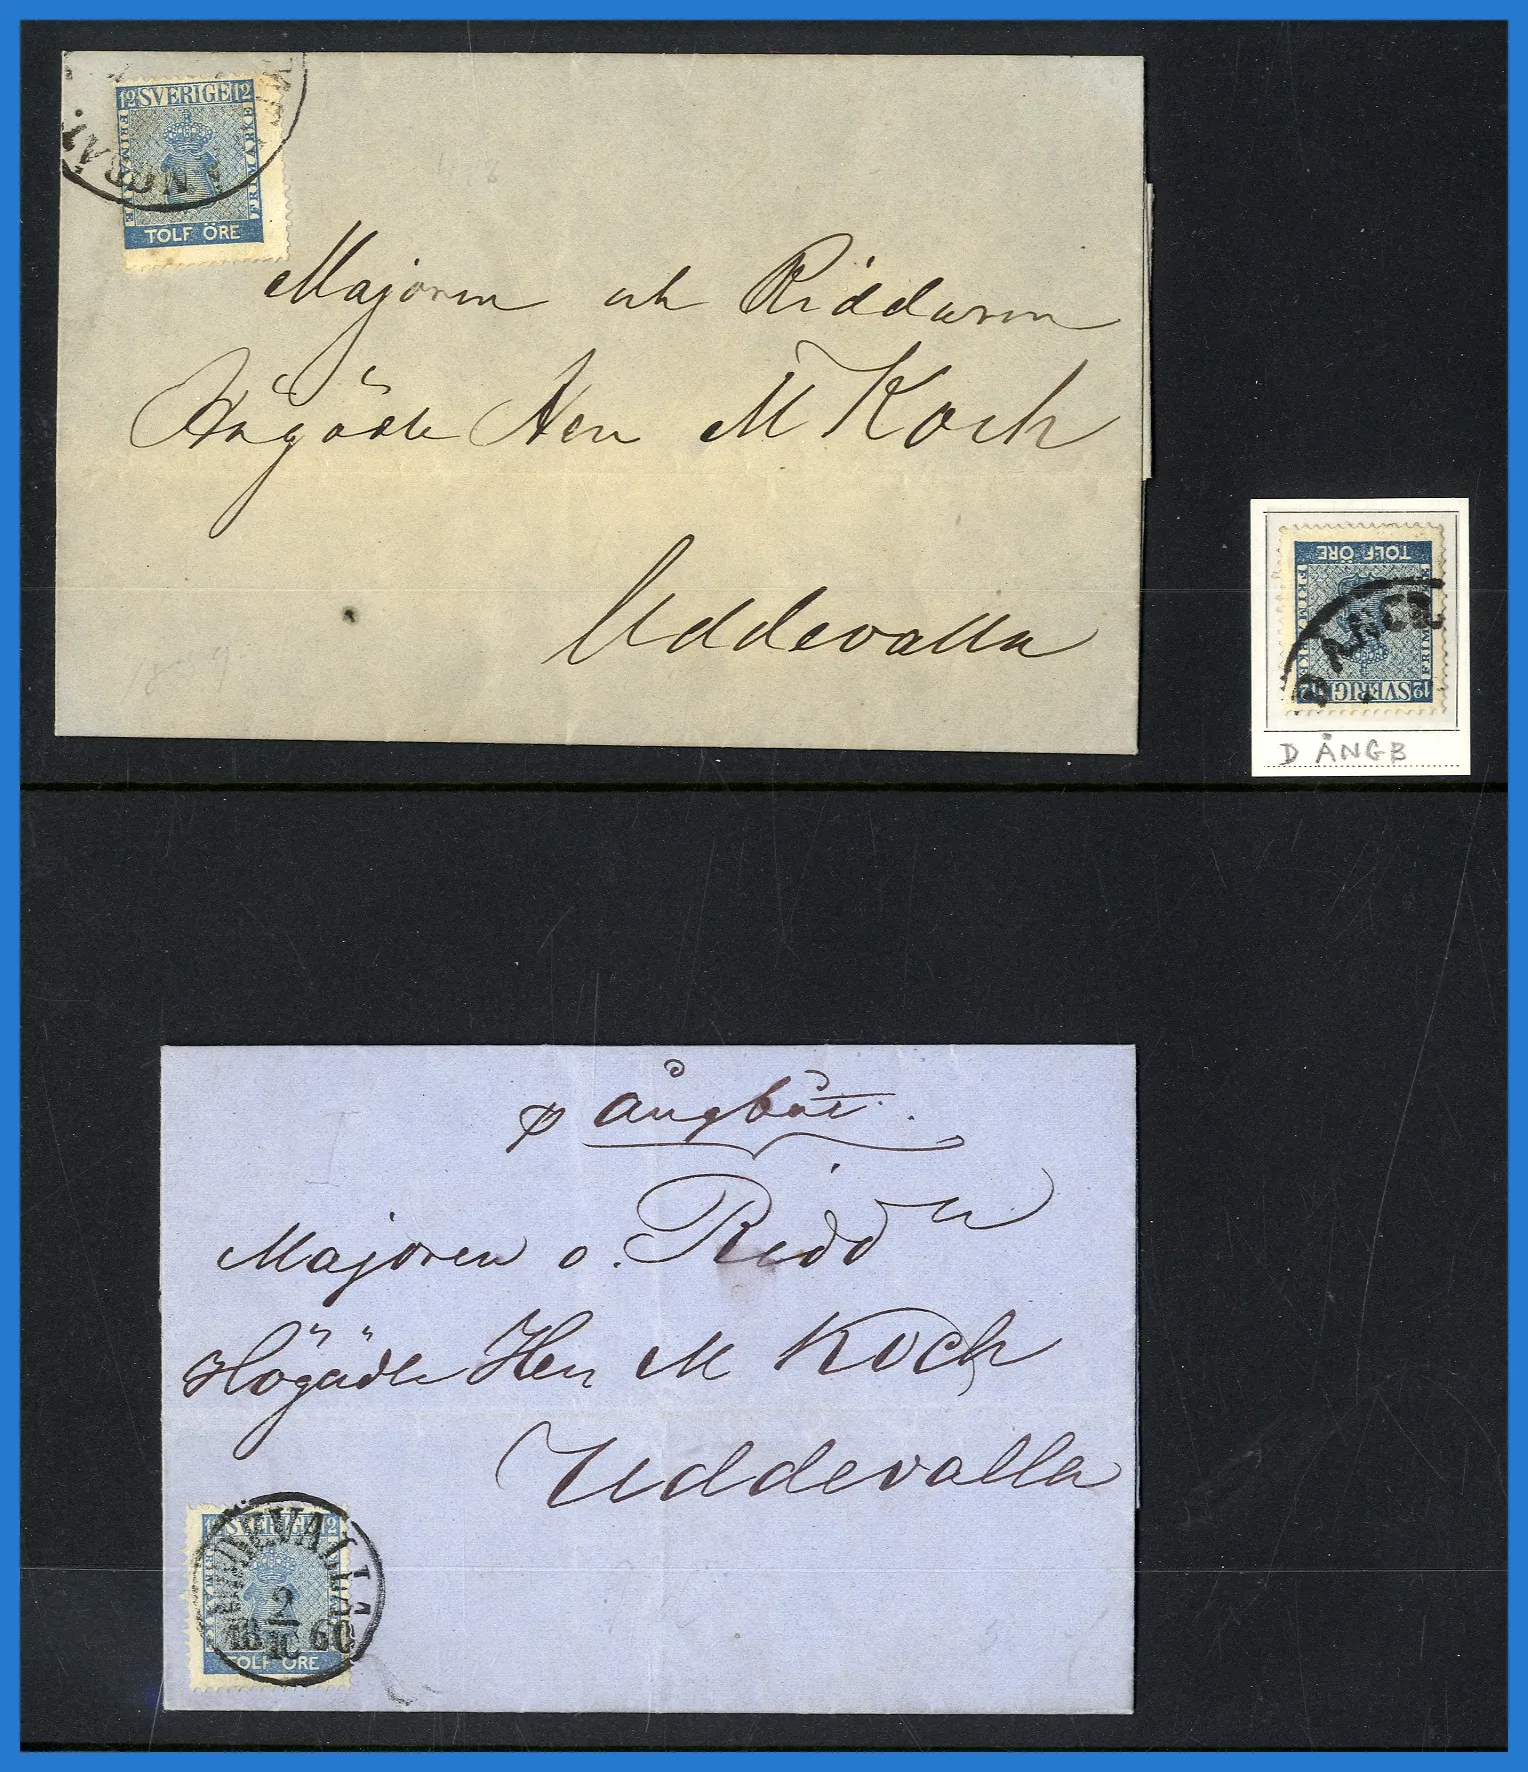 12 SVERIGE 12
FRIMÄRKE
TOLF ÖRE
Majoren och Riddaren
Högädle Herr M Koch
Uddevalla
TOLF ÖRE
FRIM
12 SVERIG 12
D ÅNGB
p Ångbåt.
Majoren o. Ridd
Högädle Herr M Koch
Uddevalla
12 SVERIGE 12
UDDEVALLA
2
18 10 60
TOLF ÖRE